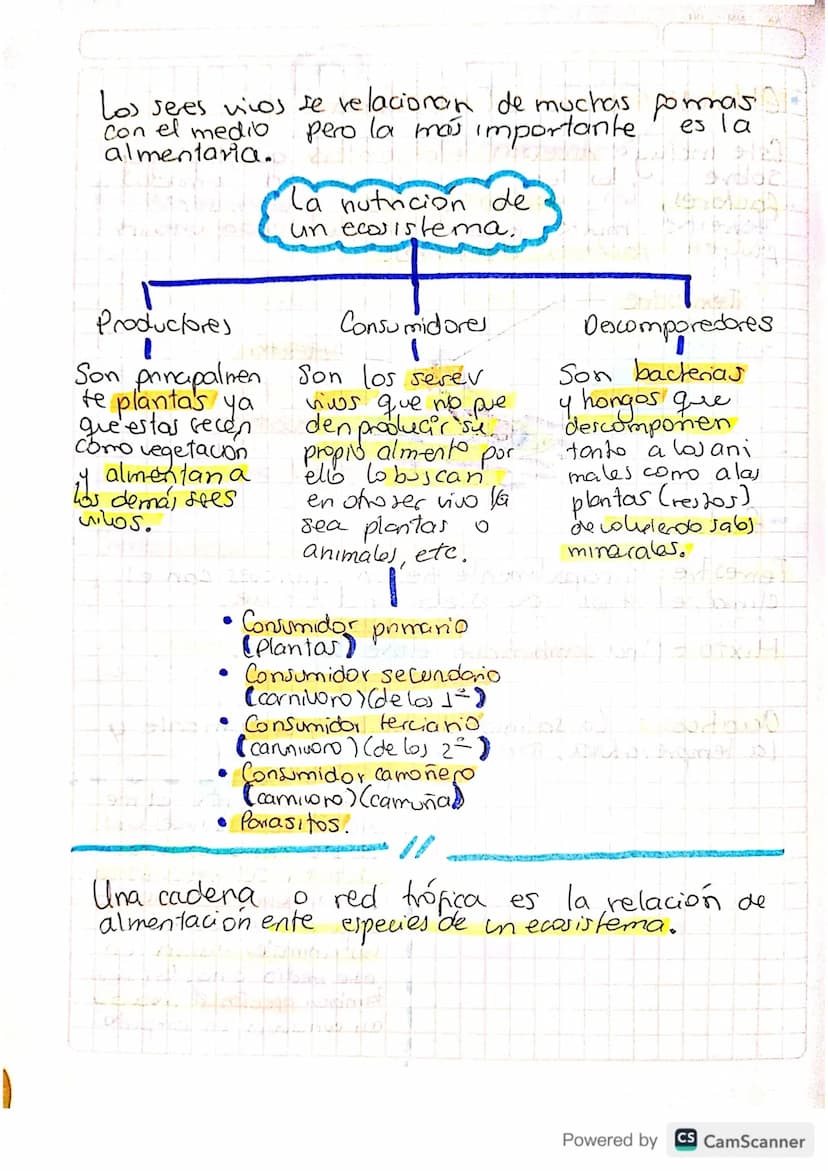 Los seres vivos se relacionan de muchas formas
con el medio pero la más importante es la
almentaria.
La nutrición de
un ecosistema.
Productores
Son principalmen
te plantas ya
que estas crecen
como vegetación
y almentan a
los demás sees
vivos.
Consumidores
Son los serev
vivos que no pue
den producir su
propio almento por
ello lo buscan
en otro ser vivo Ya
sea plantas o
animales, etc.
Descomporedores
Son bacterias
y hongos que
descomponen
tanto a los ani
males como a las
plantas (restos)
devolviendo sales
minerales.
• Consumidor primario
(plantas)
• Consumidor secundario
(carnívoro) (de los 1º)
• Consumidor terciario
(carnivoro) (de los 2º)
• Consumidor carroñero
(carnivoro) (carruña)
• Parasitos.
Una cadena o red trófica es la relación de
almentación ente especies de un ecosistema.
Powered by CS CamScanner